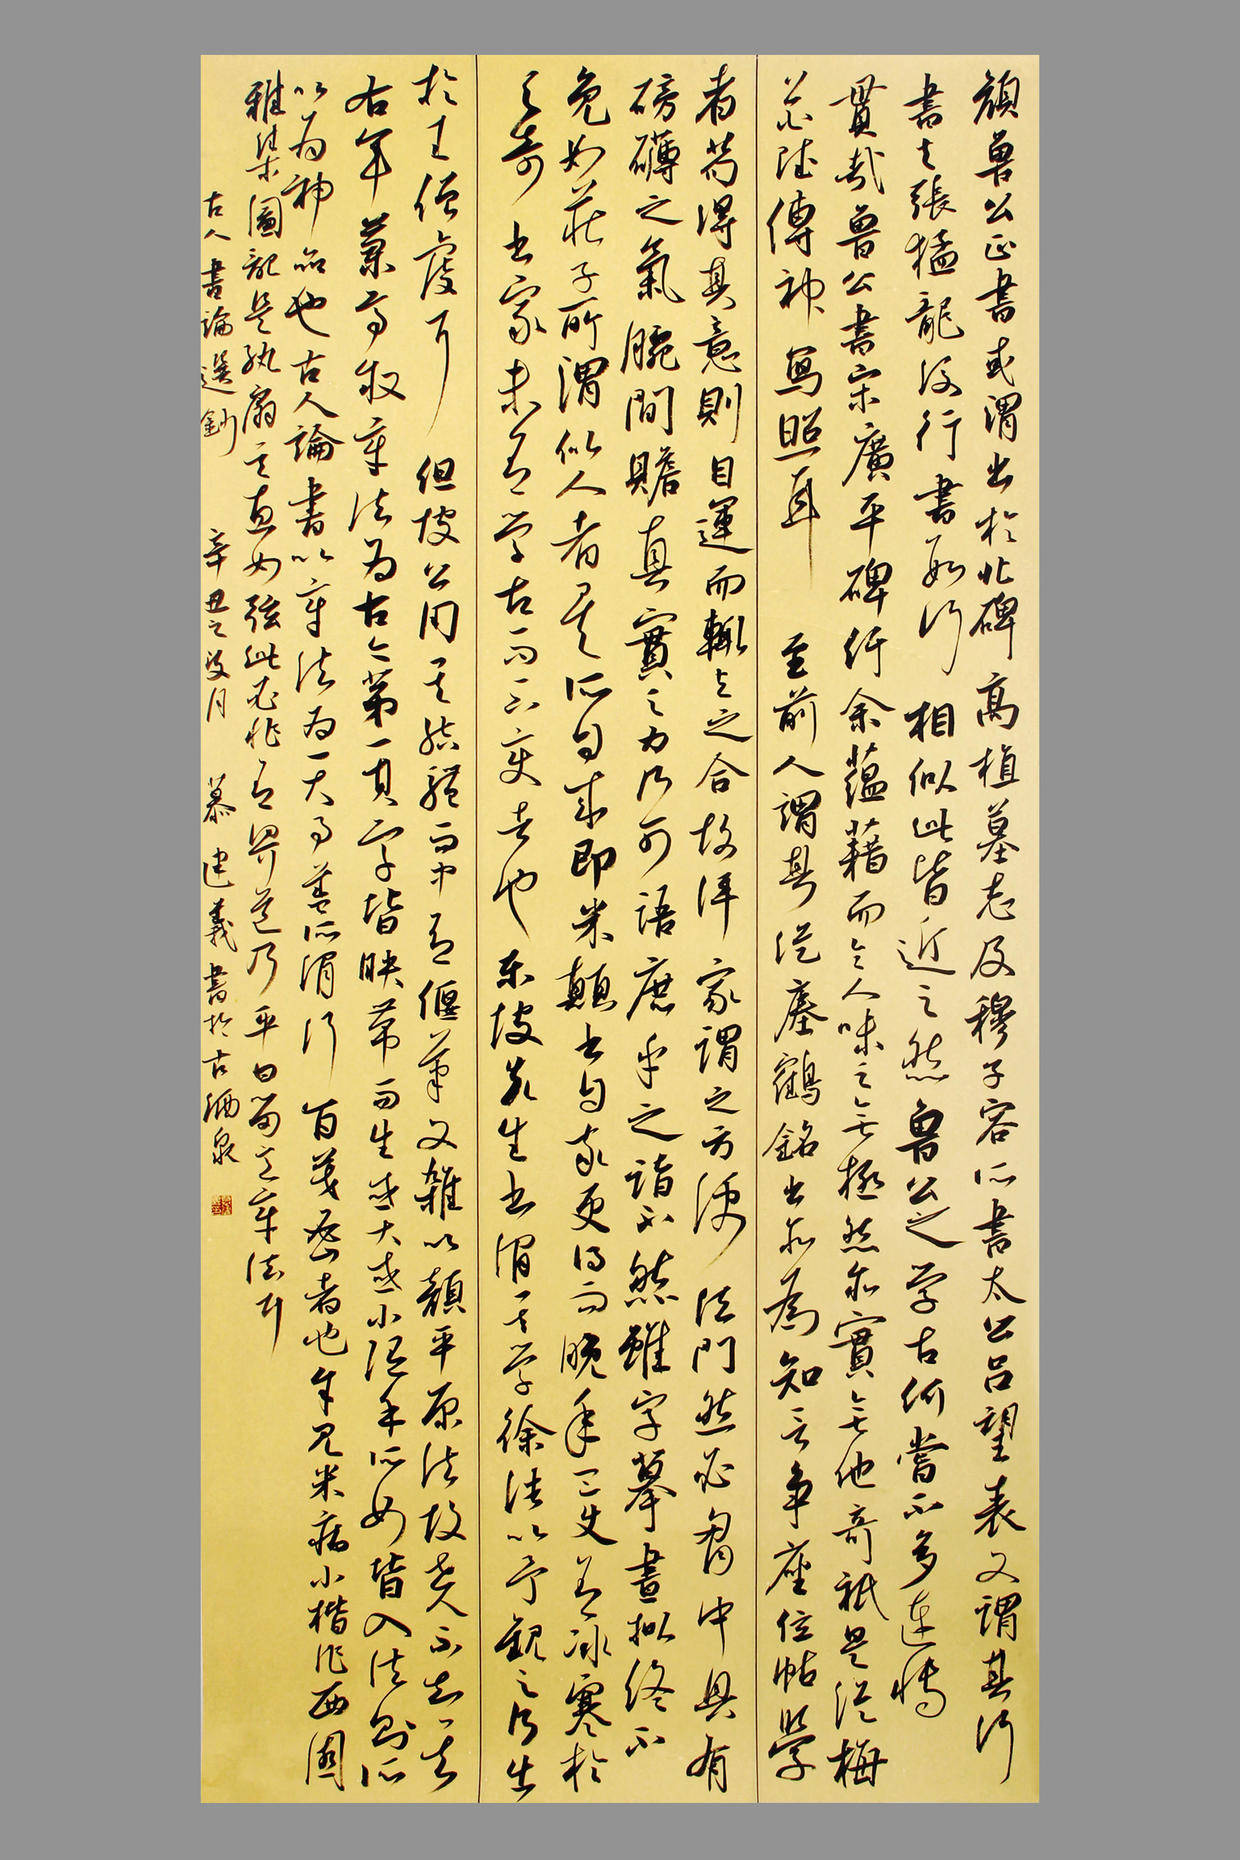 顔魯公正書或謂出於北碑高植墓志及穆子容所書太公呂望表又謂其行
書與張猛龍後行書數行相似此皆近之然魯公之學古何嘗不多連博
貫哉魯公書宋廣平碑紆余蘊藉而令人味之無極然亦實無他奇祇是從梅
花傳神寫照耳至前人謂其從瘞鶴銘出亦為知言爭座位帖學
者苟得其意則自運而輒與之合故評家謂之方便法門然必胸中具有
磅礴之氣腕間贍真實之力乃可語庶乎之詣不然雖字摹畫擬終不
免如莊子所謂似人者矣所自來即米顛書自率更得而晚年一變有冰寒於
之奇書家未有學古而不變者也東坡先生書謂其學徐浩以予觀之乃出
於王僧虔耳但坡公用其結體而中有偃筆又雜以顔平原法故世人不知其
右軍蘭亭叙章法為古今第一其字皆映帶而生或大或小隨手所如皆入法則所
以為神品也古人論書以章法為一大事蓋所謂行茂密者也余見米痴小楷作西園
雅集圖記是紈扇其直如弦此必非有界道乃平日留意章法耳
古人書論選鈔辛丑之月慕建義書於古酒泉